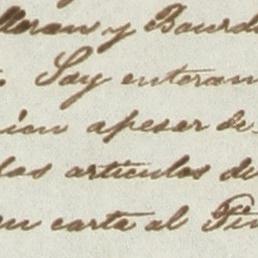 y Bourd
Soy enteran
ien apesar de
los articulos de
en carta al Fin